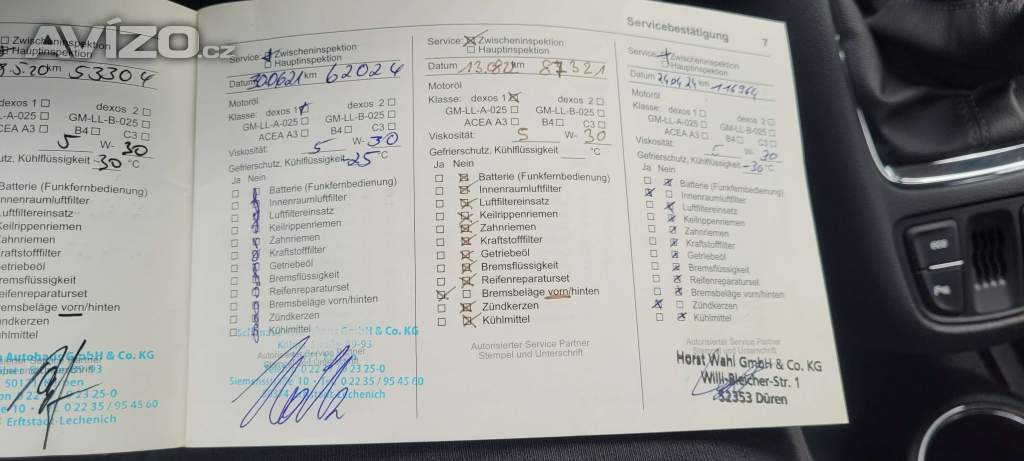 Avízo.cz
Servicebestätigung 7
Zwischeninspektion
Hauptinspektion
5.20 km 53304
dexos 1 dexos 2
LL-A-025 GM-LL-B-025
ACEA A3 B4 C3
5 W- 30
utz, Kühlflüssigkeit -30 °C
Batterie (Funkfernbedienung)
nnenraumluftfilter
Luftfiltereinsatz
Keilrippenriemen
Zahnriemen
raftstofffilter
etriebeöl
remsflüssigkeit
eifenreparaturset
emsbeläge vorn/hinten
ündkerzen
ühlmittel
Autohaus GmbH & Co. KG
89-93
0 22 35 / 95 45 60
Erftstadt-Lechenich
Service: Zwischeninspektion
Hauptinspektion
Datum 300621 km 62024
Motoröl
Klasse: dexos 1 dexos 2
GM-LL-A-025 GM-LL-B-025
ACEA A3 B4 C3
Viskosität: 5 W- 30
Gefrierschutz, Kühlflüssigkeit -25 °C
Ja Nein
Batterie (Funkfernbedienung)
Innenraumluftfilter
Luftfiltereinsatz
Keilrippenriemen
Zahnriemen
Kraftstofffilter
Getriebeöl
Bremsflüssigkeit
Reifenreparaturset
Bremsbeläge vorn/hinten
Zündkerzen
Kühlmittel
& Co. KG
Autorisierter Service Partner
0 22 35 / 95 45 60
Service: Zwischeninspektion
Hauptinspektion
Datum km 87321
Motoröl
Klasse: dexos 1 dexos 2
GM-LL-A-025 GM-LL-B-025
ACEA A3 B4 C3
Viskosität: 5 W- 30
Gefrierschutz, Kühlflüssigkeit °C
Ja Nein
Batterie (Funkfernbedienung)
Innenraumluftfilter
Luftfiltereinsatz
Keilrippenriemen
Zahnriemen
Kraftstofffilter
Getriebeöl
Bremsflüssigkeit
Reifenreparaturset
Bremsbeläge vorn/hinten
Zündkerzen
Kühlmittel
Autorisierter Service Partner
Stempel und Unterschrift
Service: Zwischeninspektion
Hauptinspektion
Datum 240424 km 116964
Motoröl
Klasse: dexos 1 dexos 2
GM-LL-A-025 GM-LL-B-025
ACEA A3 B4 C3
Viskosität: 5 W- 30
Gefrierschutz, Kühlflüssigkeit -30 °C
Ja Nein
Batterie (Funkfernbedienung)
Innenraumluftfilter
Luftfiltereinsatz
Keilrippenriemen
Zahnriemen
Kraftstofffilter
Getriebeöl
Bremsflüssigkeit
Reifenreparaturset
Bremsbeläge vorn/hinten
Zündkerzen
Kühlmittel
Autorisierter Service Partner
Stempel und Unterschrift
Horst Wahl GmbH & Co. KG
Willi-Bleicher-Str. 1
52353 Düren
eco